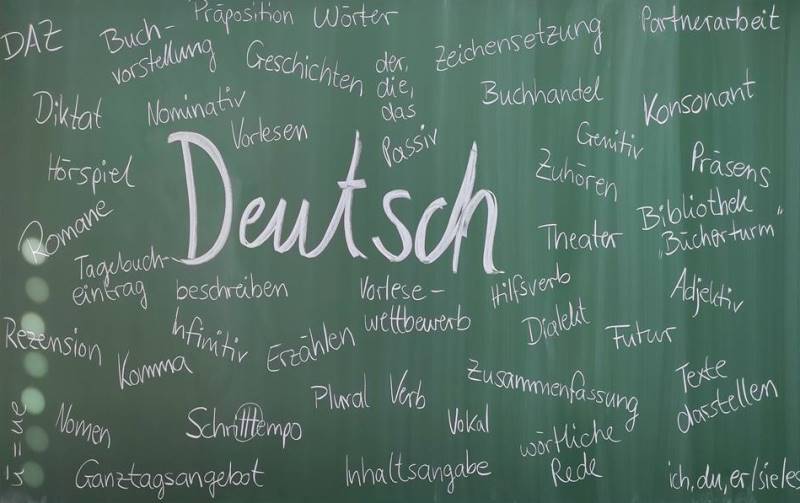 Präposition Wörter
DAZ
Buch-
vorstellung
Geschichten
der,
die,
das
Zeichensetzung
Partnerarbeit
Diktat
Nominativ
Vorlesen
Passiv
Buchhandel
Konsonant
Genitiv
Hörspiel
Deutsch
Zuhören
Präsens
Romane
Theater
Bibliothek
„Bücherturm“
Tagebuch-
eintrag
beschreiben
Vorlese-
wettbewerb
Hilfsverb
Adjektiv
Rezension
Infinitiv
Dialekt
Futur
Komma
Erzählen
Plural
Verb
Zusammenfassung
Texte
darstellen
Nomen
Schritttempo
Vokal
wörtliche
Rede
Ganztagsangebot
Inhaltsangabe
ich, du, er/sie/es